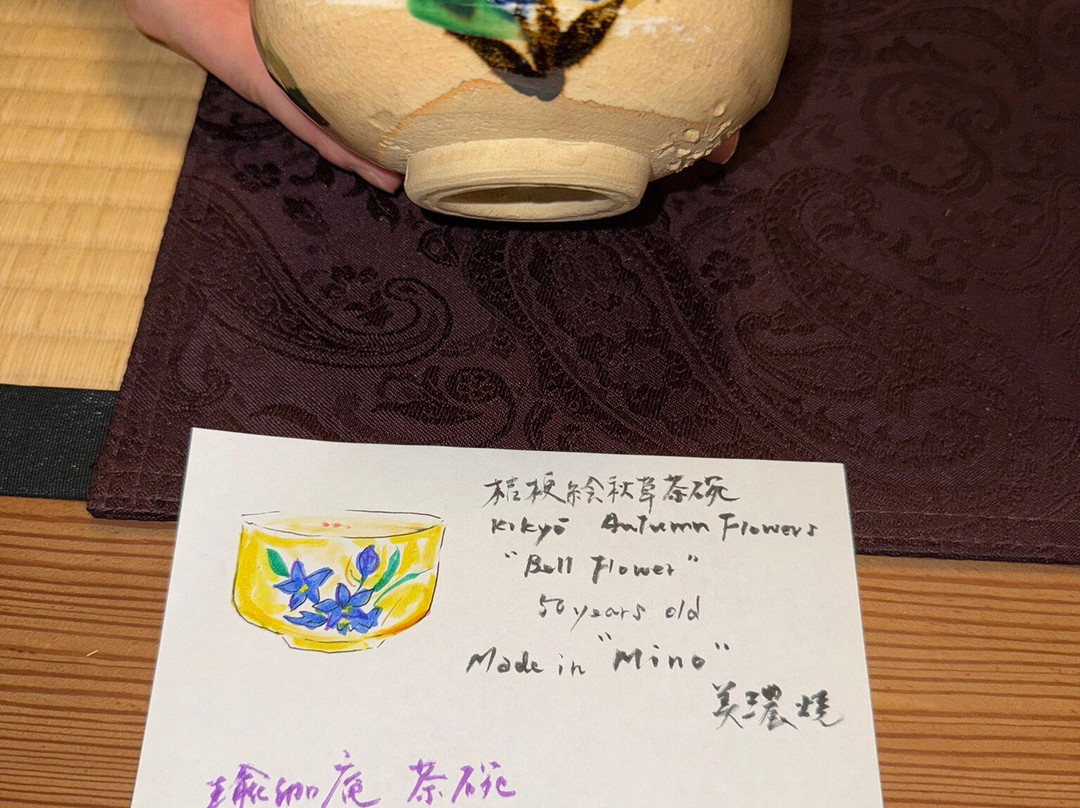 桔梗絵秋草茶碗
Kikyō Autumn Flowers
"Bell Flower"
50 years old
Made in "Mino"
美濃焼
瑜伽庵 茶碗